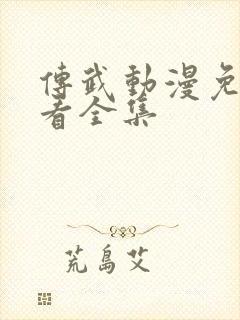 傳武動漫免
看全集
荒島艾